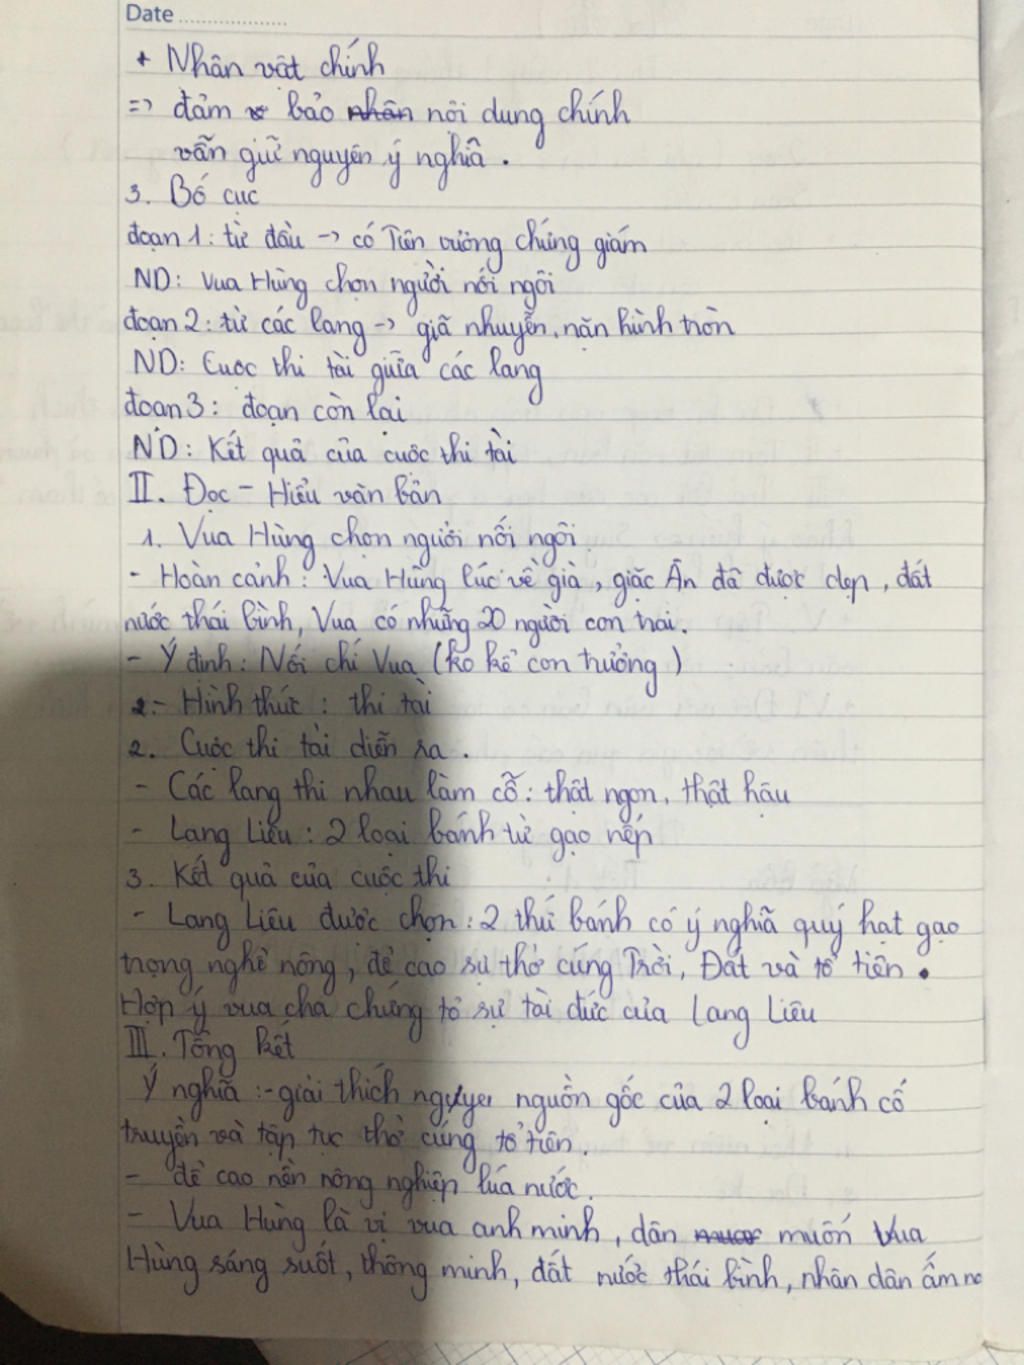 Date
+ Nhân vật chính
=> đảm bảo nhân nội dung chính
vẫn giữ nguyên ý nghĩa.
3. Bố cục
đoạn 1: từ đầu -> có Tiên vương chứng giám
ND: Vua Hùng chọn người nối ngôi
đoạn 2: từ các lang -> giã nhuyễn, nặn hình tròn
ND: Cuộc thi tài giữa các lang
đoạn 3: đoạn còn lại
ND: Kết quả của cuộc thi tài
II. Đọc - Hiểu văn bản
1. Vua Hùng chọn người nối ngôi.
- Hoàn cảnh: Vua Hùng lúc về già, giặc Ân đã được dẹp, đất
nước thái bình, Vua có những 20 người con trai.
- Ý định: Nối chí Vua (ko kể con trưởng)
2.- Hình thức: thi tài
2. Cuộc thi tài diễn ra.
- Các lang thi nhau làm cỗ: thật ngon, thật hậu
- Lang Liêu: 2 loại bánh từ gạo nếp
3. Kết quả của cuộc thi
- Lang Liêu được chọn: 2 thứ bánh có ý nghĩa quý hạt gạo
trọng nghề nông, đề cao sự thờ cúng Trời, Đất và tổ tiên.
Hợp ý vua cha chứng tỏ sự tài đức của Lang Liêu
III. Tổng kết
Ý nghĩa:- giải thích nguồn gốc của 2 loại bánh cổ
truyền và tập tục thờ cúng tổ tiên.
- đề cao nền nông nghiệp lúa nước.
- Vua Hùng là vị vua anh minh, dân muốn Vua
Hùng sáng suốt, thông minh, đất nước thái bình, nhân dân ấm no